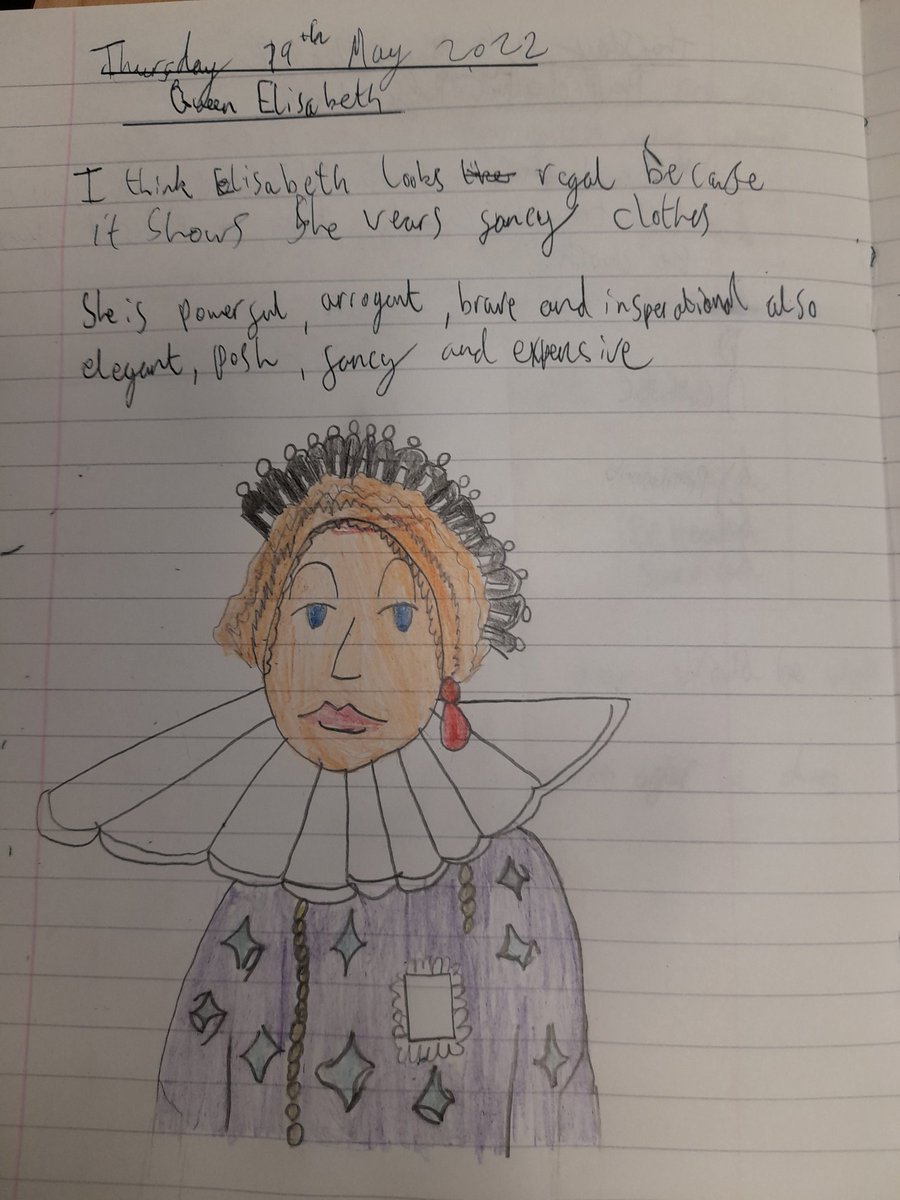 Thursday 19th May 2022
Queen Elisabeth
I think Elisabeth looks like regal because
it shows she vears fancy clothes
She is powerful, arrogant, brave and insperational also
elegant, posh, fancy and expensive